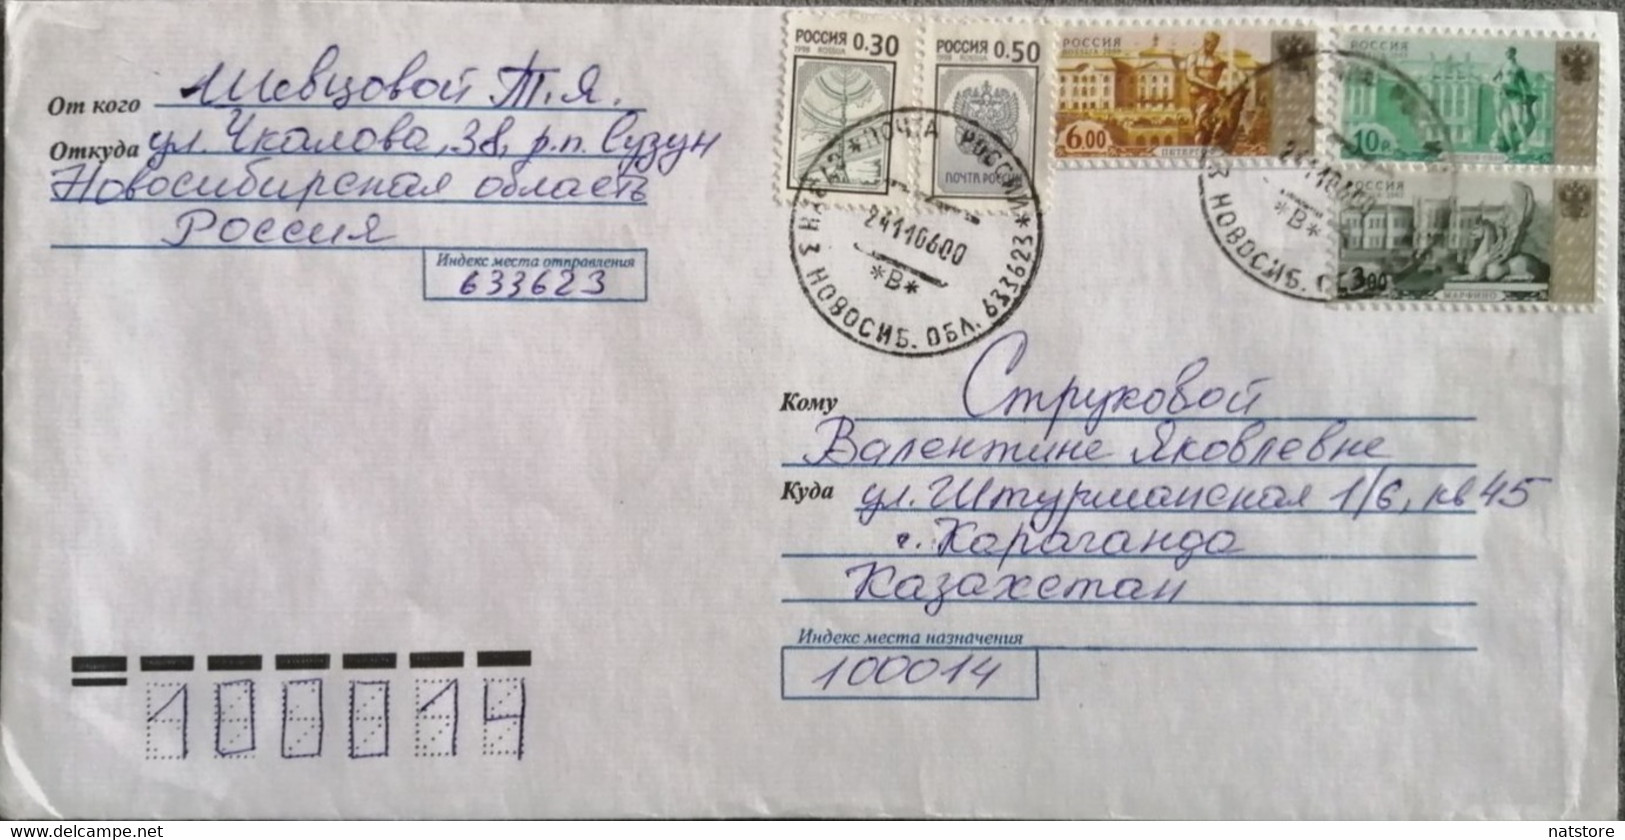 От кого Шевцовой Т.Я.
Откуда ул. Чкалова, 38, р.п. Сузун
Новосибирская область
Россия
Индекс места отправления
633623
РОССИЯ 0.30
1998 ROSSIJA
РОССИЯ 0.50
1998 ROSSIJA
ПОЧТА РОССИИ
РОССИЯ
6.00
10 Р.
РОССИЯ
3.00
МАРФИНО
*ПОЧТА РОССИИ* 633623
НОВОСИБ. ОБЛ.
24110600
*В*
НОВОСИБ.
*В*
Кому Струковой
Валентине Яковлевне
Куда ул. Штурманская 1/6, кв 45
г. Караганда
Казахстан
Индекс места назначения
100014
100014
natstore